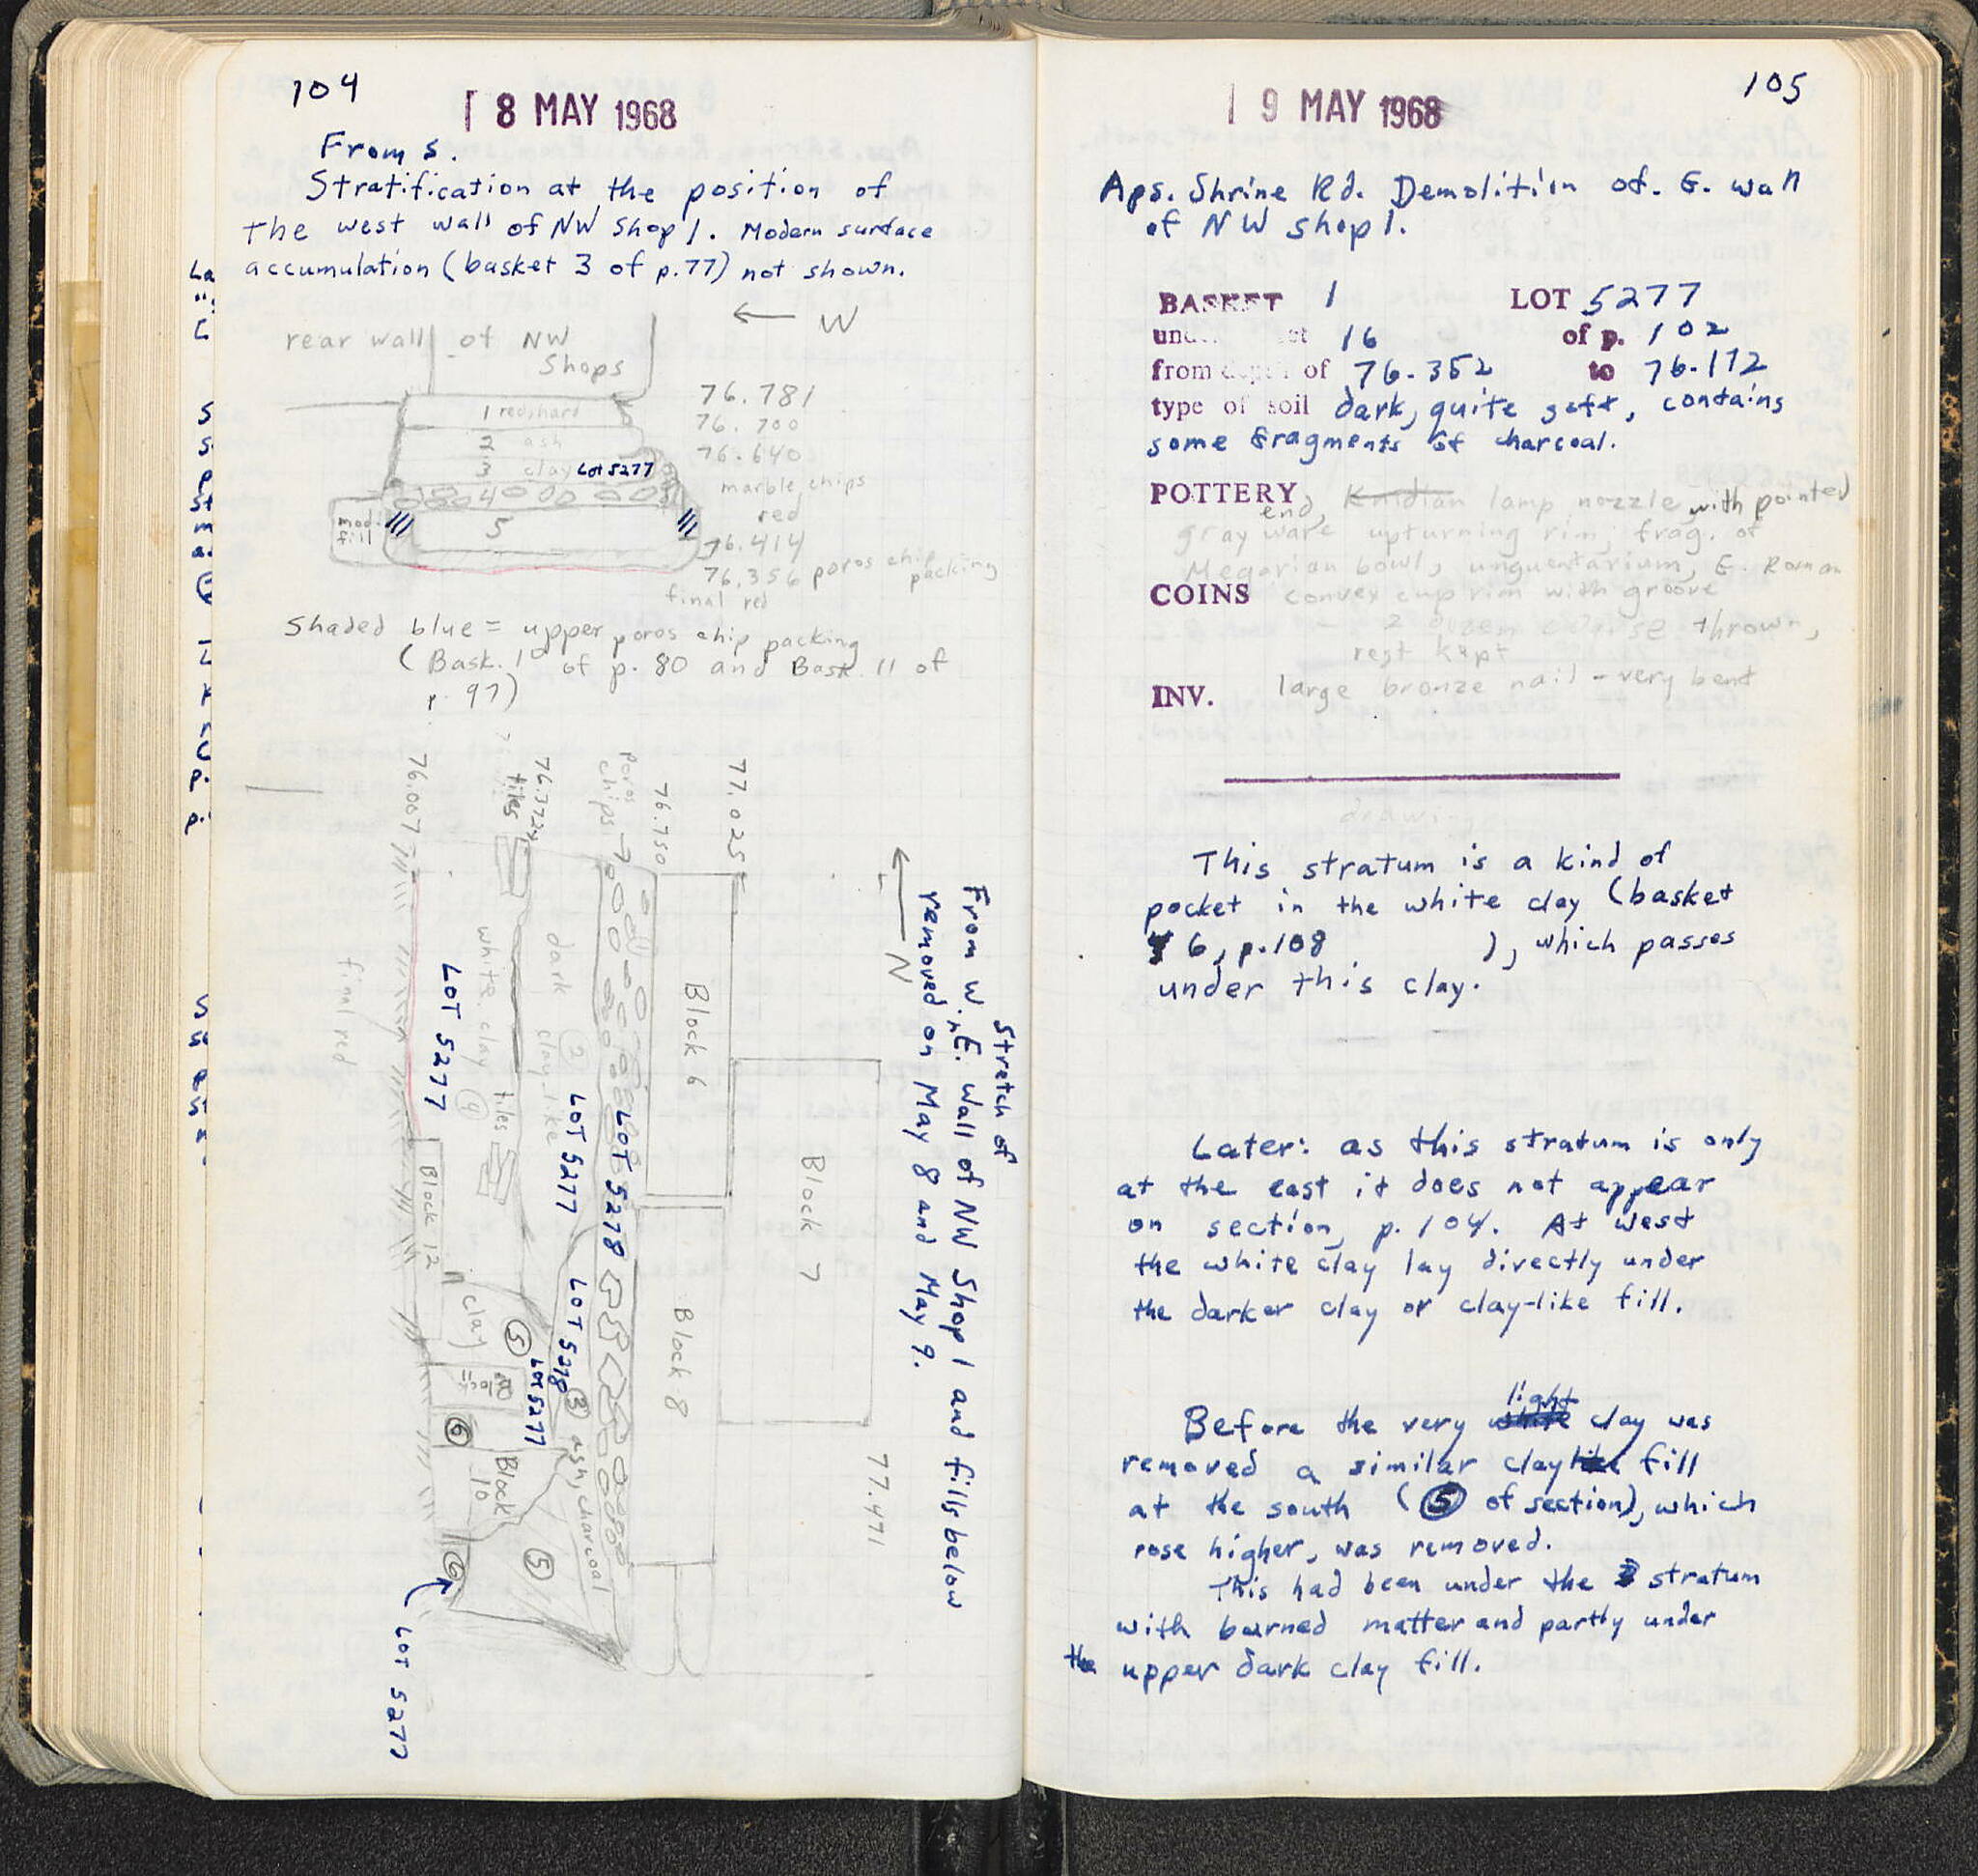 104
8 MAY 1968
From S.
Stratification at the position of
the west wall of NW Shop 1. Modern surface
accumulation (basket 3 of p.77) not shown.
← W
rear wall of NW
Shops
1 red hard
2 ash
3 clay Lot 5277
4
5
mod.
fill
76.781
76.700
76.640
marble chips
red
76.414
76.356 poros chip
packing
final red
Shaded blue = upper poros chip packing
(Bask. 10 of p. 80 and Bask. 11 of
p. 97)
N
Stretch of
From W. E. Wall of NW Shop 1 and fills below
removed on May 8 and May 9.
77.471
77.025
76.750
poros
chips
76.372
tiles
76.007
Block 7
Block 6
Block 8
LOT 5278
dark 2
clay-like
LOT 5277
LOT 5278
3 ash, charcoal
white clay 4
tiles
LOT 5277
5
LOT 5277
clay
Block 11
6
Block
10
5
6
Block 12
final red
LOT 5277
105
9 MAY 1968
Aps. Shrine Rd. Demolition of E. wall
of NW shop 1.
BASKET 1 LOT 5277
16 of p. 102
from of 76.352 to 76.112
type of soil dark, quite soft, contains
some fragments of charcoal.
POTTERY Knidian lamp nozzle with pointed
end, gray ware upturning rim; frag. of
Megarian bowl, unguentarium, E. Roman
COINS convex cup rim with groove
2 dozen coarse thrown,
rest kept
INV. large bronze nail - very bent
drawing
This stratum is a kind of
pocket in the white clay (basket
6, p.108 ), which passes
under this clay.
Later: as this stratum is only
at the east it does not appear
on section, p. 104. At west
the white clay lay directly under
the darker clay or clay-like fill.
light
Before the very white clay was
removed a similar claylike fill
at the south (5 of section), which
rose higher, was removed.
This had been under the 3 stratum
with burned matter and partly under
the upper dark clay fill.